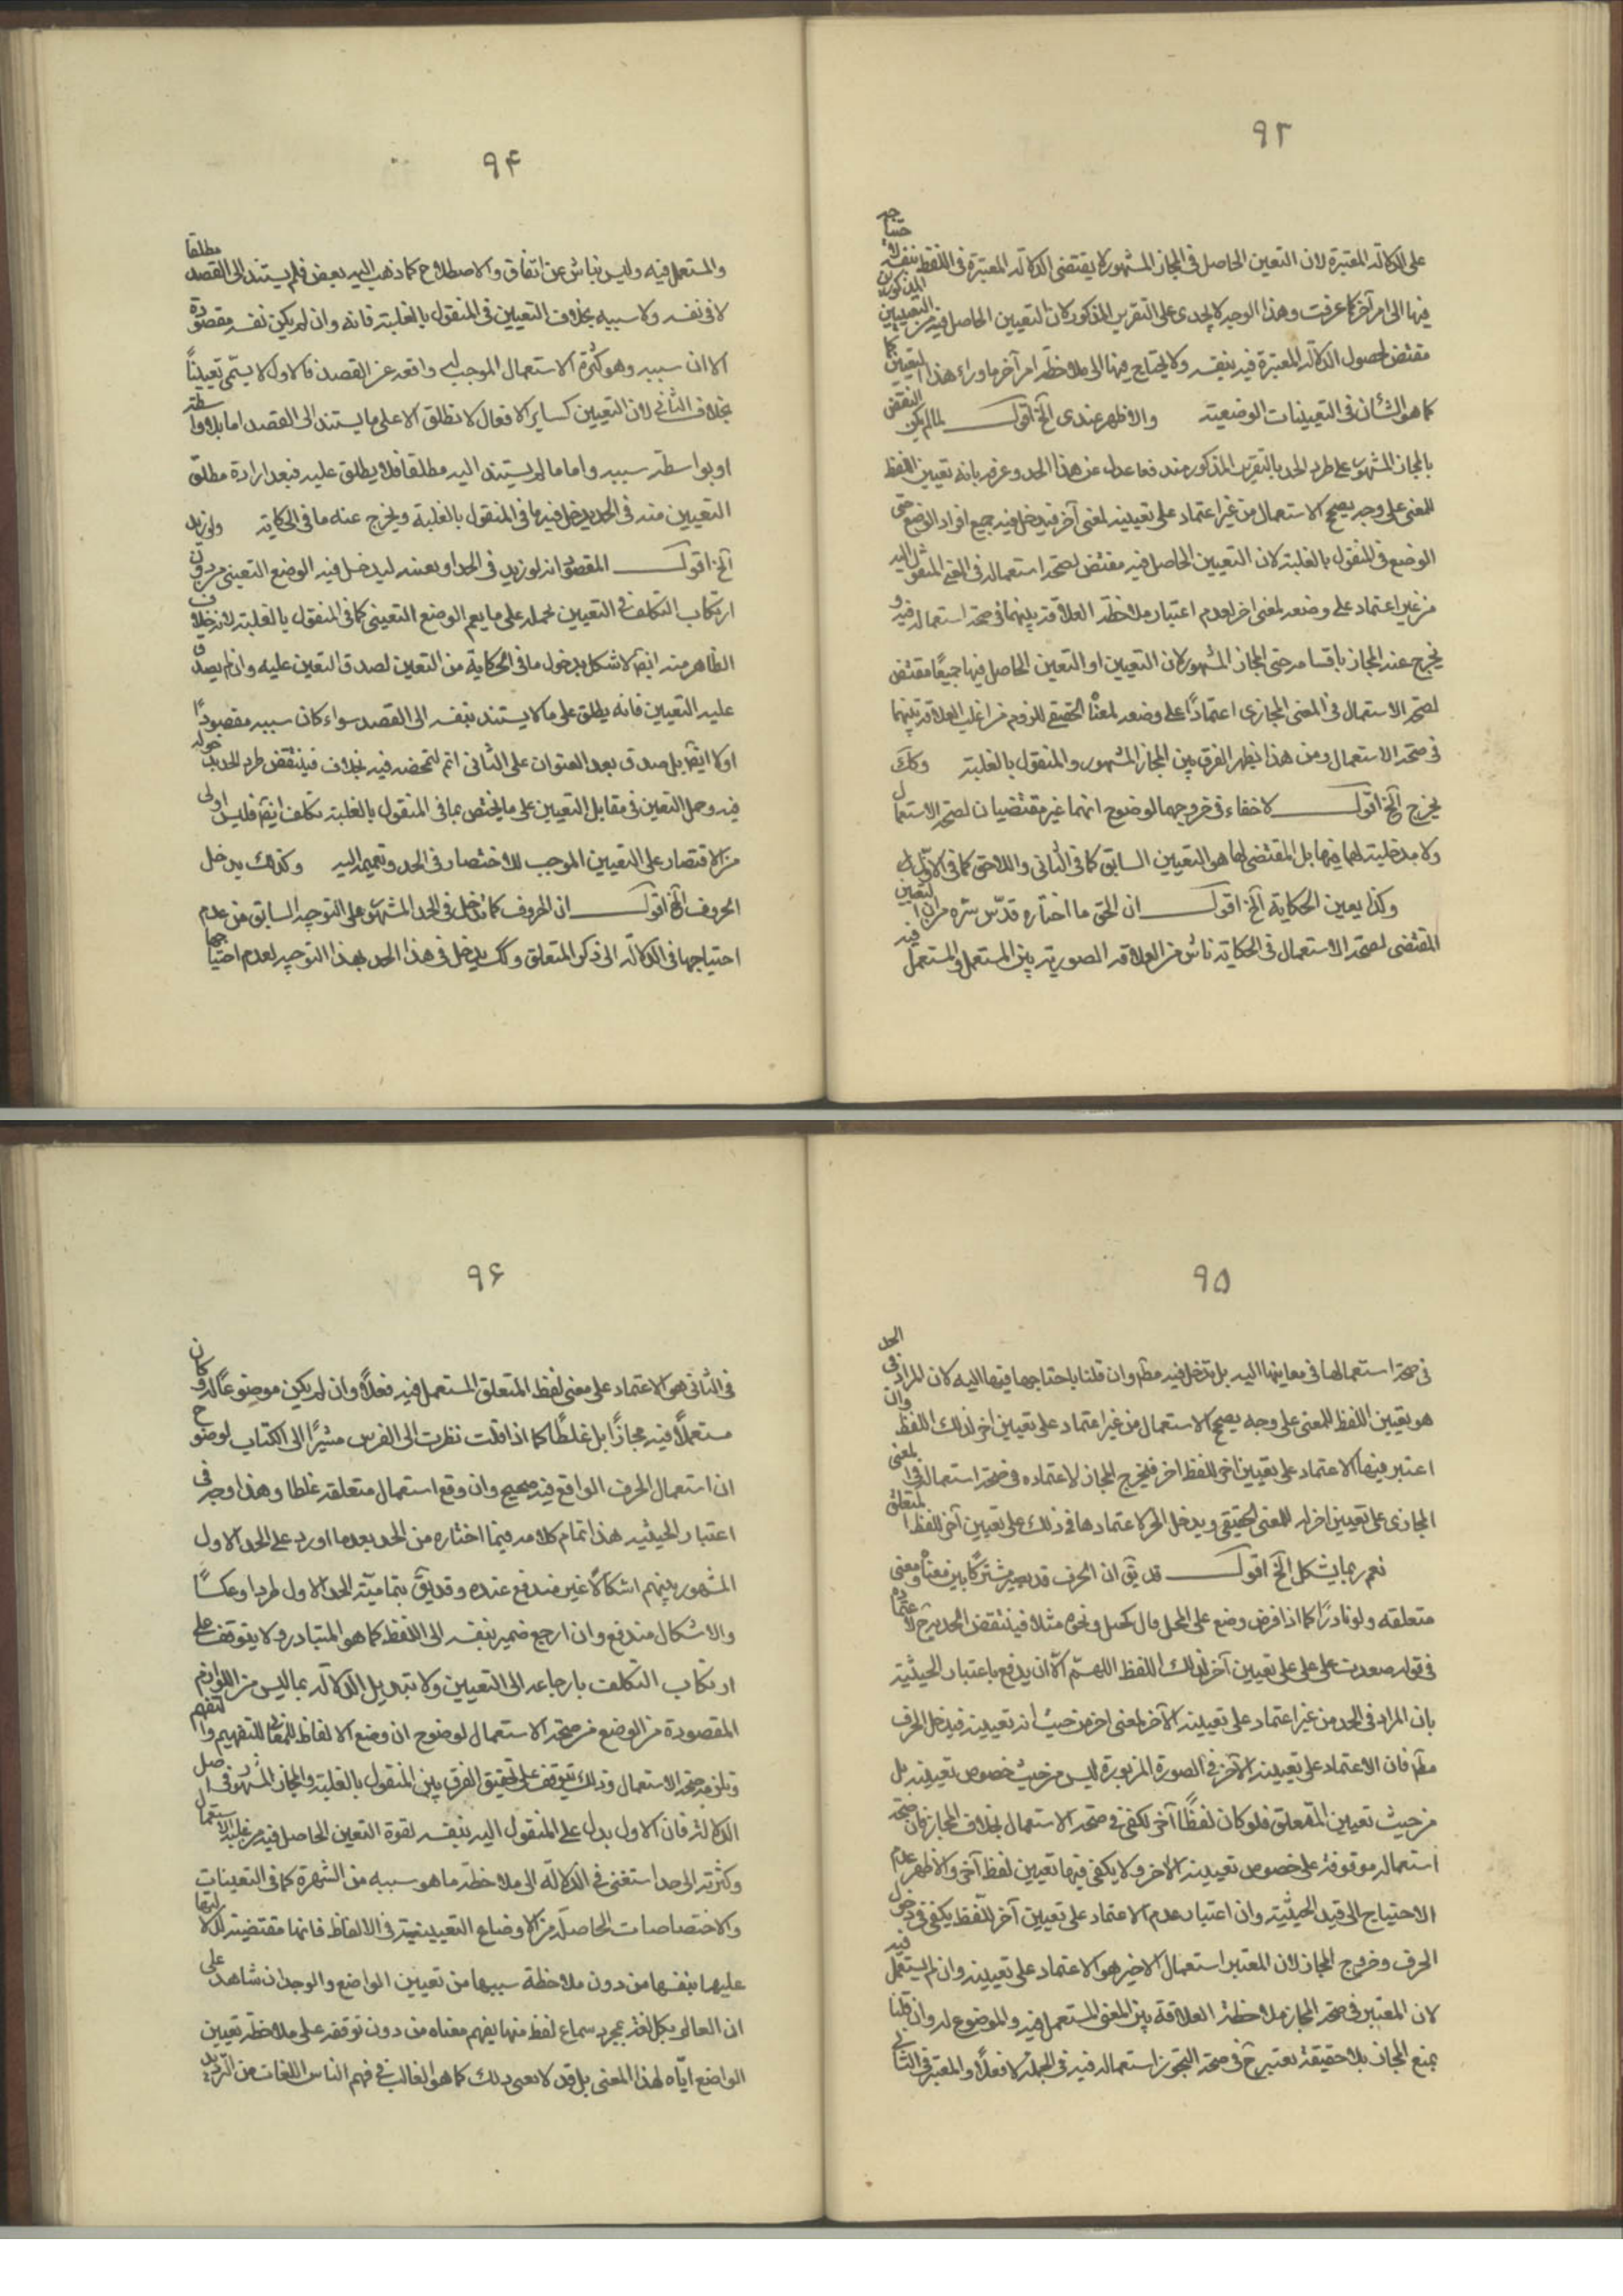 ۹۳
على الدلالة المعتبرة لان التعين الحاصل فى المجاز المشهور لا يقتضى الدلالة المعتبرة فى اللفظ بنفسه
فيها الى امر آخر كما عرفت وهذا الوجه لا يجدى على التقرير المذكور لان التعيين الحاصل فيه من التعيينين المذكورين
مقتض لحصول الدلالة المعتبرة فيه بنفسه ولا يحتاج فيها الى ملاحظة امر آخر ما وراء هذا التعيين
كما هو الشأن فى التعيينات الوضعيته والاظهر عندى آلخ اقول لما لم يكن النقض
بالمجاز المشهور على طرد الحد بالتقرير المذكور مندفعا عدل عن هذا الحد وعرفه بانه تعيين اللفظ
للمعنى على وجه يصح الاستعمال من غير اعتماد على تعيينه لمعنى آخر فيدخل فيه جميع افراد الوضع حتى
الوضع فى المنقول بالغلبة لان التعيين الحاصل فيه مقتض لصحة استعماله فى المعنى المنقول اليه
من غير اعتماد على وضعه لمعنى اخر لعدم اعتبار ملاحظة العلاقة بينهما فى صحة استعماله فيه و
يخرج عنه المجاز باقسامه حتى المجاز المشهور لان التعيين او التعين الحاصل فيها جميعًا مقتض
لصحة الاستعمال فى المعنى المجازى اعتمادًا على وضعه لمعناه الحقيقى للزوم مراعات العلاقة بينهما
فى صحة الاستعمال ومن هذا يظهر الفرق بين المجاز المشهور والمنقول بالغلبة وكك
يخرج آلخ اقول لا خفاء فى خروجهما لوضوح انهما غير مقتضيان لصحة الاستعمال
ولا مدخلية لهما فيها بل المقتضى لها هو التعيين السابق كما فى الثانى واللاحق كما فى الاول
وكذا يعين الحكاية آلخ اقول ان الحق ما اختاره قدس سره من ان التعيين
المقتضى لصحة الاستعمال فى الحكاية ناش من العلاقة الصورية بين المستعمل والمستعمل فيه
۹۴
والمستعمل فيه وليس بناش عن اتفاق والاصطلاح كما ذهب اليه بعض فلم يستند الى القصد مطلقا
لا فى نفسه ولا سببه بخلاف التعيين فى المنقول بالغلبة فانه وان لم يكن نفسه مقصودة
الا ان سببه وهو كثرة الاستعمال الموجب له واقعه عن القصد فالاول لا يسمى تعيينًا
بخلاف الثانى لان التعيين كساير الافعال لا تطلق الا على ما يستند الى القصد اما بلا واسطة
او بواسطة سببه واما ما لم يستند اليه مطلقا فلا يطلق عليه فبعد ارادة مطلق
التعيين منه فى الحد يدخل فيه ما فى المنقول بالغلبة ويخرج عنه ما فى الحكاية ولو زيد
آلخ اقول المقصود انه لو زيد فى الحد او بعينه ليدخل فيه الوضع التعينى من دون
ارتكاب التكلف فى التعيين بحمله على ما يعم الوضع التعينى كما فى المنقول بالغلبة لانه خلاف
الظاهر منه ايضً لاشكل بدخول ما فى الحكاية من التعين لصدق التعين عليه وان لم يصدق
عليه التعيين فانه يطلق على ما لا يستند بنفسه الى القصد سواء كان سببه مقصودًا
اولا ايضً بل صدق بعد العنوان على الثانى اتم لتمحضه فيه بخلاف فينتقض طرد الحد بدخوله
فيه وحمل التعين فى مقابل التعيين على ما يختص بما فى المنقول بالغلبة تكلف ايضً فليس اولى
من الاقتصار على التعيين الموجب للاختصار فى الحد وتعميمه اليه وكذلك يدخل
الحروف آلخ اقول ان الحروف كما تدخل فى الحد المشهور على التوجيه السابق من عدم
احتياجها فى الدلالة الى ذكر المتعلق وكك يدخل فى هذا الحد بهذا التوجيه لعدم احتياجها
۹۵
فى صحة استعمالها فى معاينها اليه بل تدخل فيه مطً وان قلنا باحتياجها فيها اليه لان المراد فى الحد
هو تعيين اللفظ للمعنى على وجه يصح الاستعمال من غير اعتماد على تعيين اخر لذلك اللفظ وان
اعتبر فيها الاعتماد على تعيين اخر للفظ اخر فيخرج المجاز لاعتماده فى صحة استعماله فى المعنى
المجازى على تعيين اخر له للمعنى الحقيقى ويدخل الحرف لاعتمادها فى ذلك على تعيين آخر للفظ المتعلق
نعم ربما يشكل آلخ اقول قد يق ان الحرف قد يصير مشتركًا بين معناه ومعنى
متعلقه ولو نادرًا كما اذا فرض وضع على المحل مال كحبل ونحوه مثلا فينتقض الحد بحرج لاعتماده
فى قوله صعدت على على على تعيين آخر لذلك اللفظ اللهم الا ان يدفع باعتبار الحيثية
بان المراد فى الحد من غير اعتماد على تعيينه الآخر لمعنى اخر من حيث انه تعيينه فيدخل الحرف
مطً فان الاعتماد على تعيينه الآخر فى الصورة المزبورة ليس من حيث خصوص تعيينه بل
من حيث تعيين المتعلق فلو كان لفظًا آخر لكفى فى صحة الاستعمال بخلاف المجاز فان صحة
استعماله موقوفة على خصوص تعيينه الاخر ولا يكفى فيها تعيين لفظ آخر والاظهر عدم
الاحتياج الى قيد الحيثية وان اعتبار عدم الاعتماد على تعيين آخر للفظ يكفى فى دخول
الحرف وخروج المجاز لان المعتبر استعمال الاخير هو الاعتماد على تعيينه وان لم يستعمل فيه
لان المعتبر فى صحة المجاز ملاحظة العلاقة بين المعنى المستعمل فيه والموضوع له وان قلنا
بمنع المجاز بلا حقيقة نعتبر ح فى صحة التجوز استعماله فيه فى الجملة لا فعلاً والمعتبر فى الثانى
۹۶
فى الثانى هو الاعتماد على معنى لفظ المتعلق المستعمل فيه فعلاً وان لم يكن موضوعًا له و كان
مستعملاً فيه مجازًا بل غلطًا كما اذا قلت نظرت الى الفرس مشيرًا الى الكتاب لوضوح
ان استعمال الحرف الواقع فيه صحيح وان وقع استعمال متعلقه غلطا وهذا وجه فى
اعتبار الحيثيه هذا تمام كلامه فيما اختاره من الحد بعد ما اورد على الحد الاول
المشهور بينهم اشكالاً غير مندفع عنده وقد يق بتمامية الحد الاول طردا وعكسًا
والاشكال مندفع وان ارجع ضمير بنفسه الى اللفظ كما هو المتبادر ولا يتوقف على
ارتكاب التكلف بارجاعه الى التعيين ولا تبديل الدلالة بما ليس من اللوازم
المقصودة من الوضع من صحة الاستعمال لوضوح ان وضع الالفاظ للمعانى للتفهيم والتفهم
وتلزمه صحة الاستعمال وذلك يتوقف على تحقيق الفرق بين المنقول بالغلبة والمجاز المشهور فى اصل
الدلالة فان الاول يدل على المنقول اليه بنفسه لقوة التعين الحاصل فيه من غلبة الاستعمال
وكثرته الى حد استغنى فى الدلالة الى ملاحظة ما هو سببه من الشهرة كما فى التعينات
والاختصاصات الحاصلة من الاوضاع التعيينية فى الالفاظ فانها مقتضية لدلالتها
عليها بنفسها من دون ملاحظة سببها من تعيين الواضع والوجدان شاهد على
ان العالم بكل لغة بمجرد سماع لفظ منها يفهم معناه من دون توقفه على ملاحظة تعيين
الواضع اياه لهذا المعنى بل قد لا يعى بذلك كما هو الغالب فى فهم الناس اللغات من الترديد